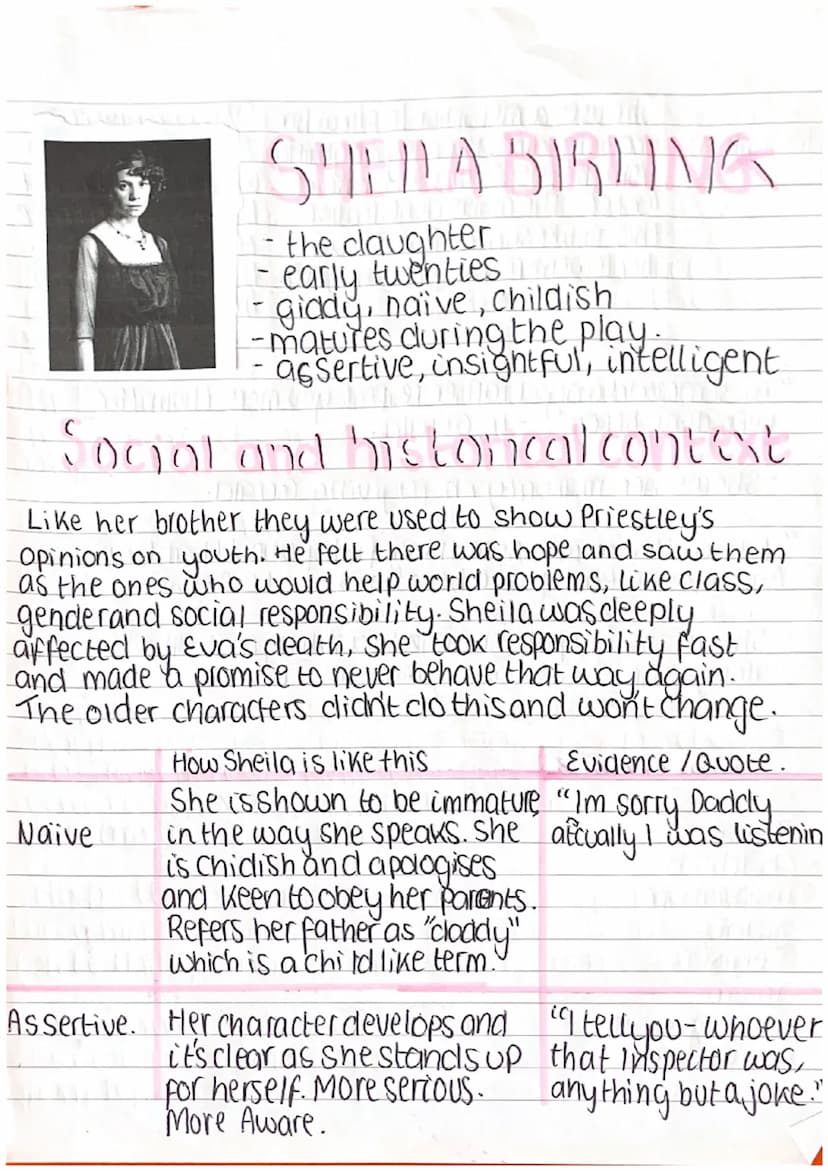 SHEILA BIRLING
- the daughter
- early twenties
- giddy, naïve, childish
- matures during the play.
- assertive, insightful, intelligent
Social and historical context
Like her brother they were used to show Priestley's
opinions on youth. He felt there was hope and saw them
as the ones who would help world problems, like class,
gender and social responsibility. Sheila was deeply
affected by Eva's death, she took responsibility fast
and made a promise to never behave that way again.
The older characters didn't do this and won't change.
How Sheila is like this
Evidence / Quote.
Naïve
She is shown to be immature
in the way she speaks. She
is Chidish and apologises
and keen to obey her parents.
Refers her father as "daddy"
which is a child like term.
"Im sorry Daddy
actually I was listenin
Assertive.
Her character develops and
it's clear as she stands up
for herself. More serious.
More Aware.
"I tell you - whoever
that Inspector was,
anything but a joke."